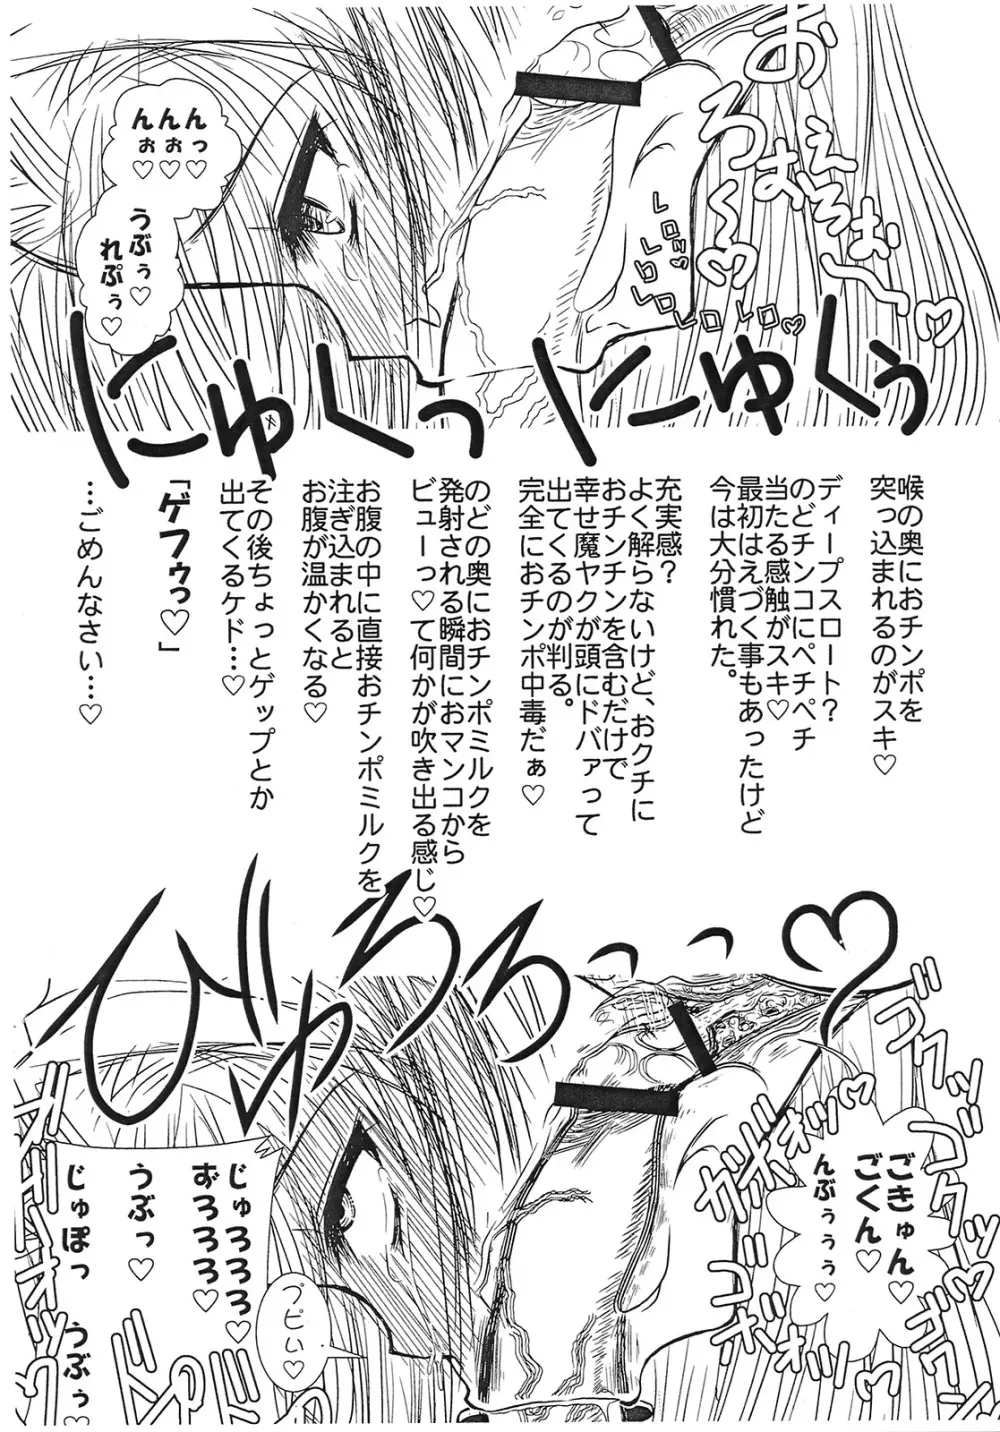 おえろぉ〜♡
ろぉぉ〜♡
レロッレロレロレロ♡
んっ♡
んぉっ♡
んぉ♡
うぶぅ♡
れぷぅ♡
にゅくっ にゅくぅ
喉の奥におチンポを
突っ込まれるのがスキ♡
ディープスロート?
のどチンコにペチペチ
当たる感触がスキ♡
最初はえづく事もあったけど
今は大分慣れた。
充実感?
よく解らないけど、おクチに
おチンチンを含むだけで
幸せ魔ヤクが頭にドバァって
出てくるのが判る。
完全におチンポ中毒だぁ♡
のどの奥におチンポミルクを
発射される瞬間におマンコから
ビューっ♡て何かが吹き出る感じ♡
お腹の中に直接おチンポミルクを
注ぎ込まれると
お腹が温かくなる♡
その後ちょっとゲップとか
出てくるケド…♡
「ゲフゥっ♡」
…ごめんなさい…♡
びゅろろっっ♡
ごきゅん♡
ごくん♡
んぶぅぅぅ♡
じゅろろろ♡
ずろろろろ♡
うぶっ♡
じゅぽっ うぶぅ♡
プビぃ♡